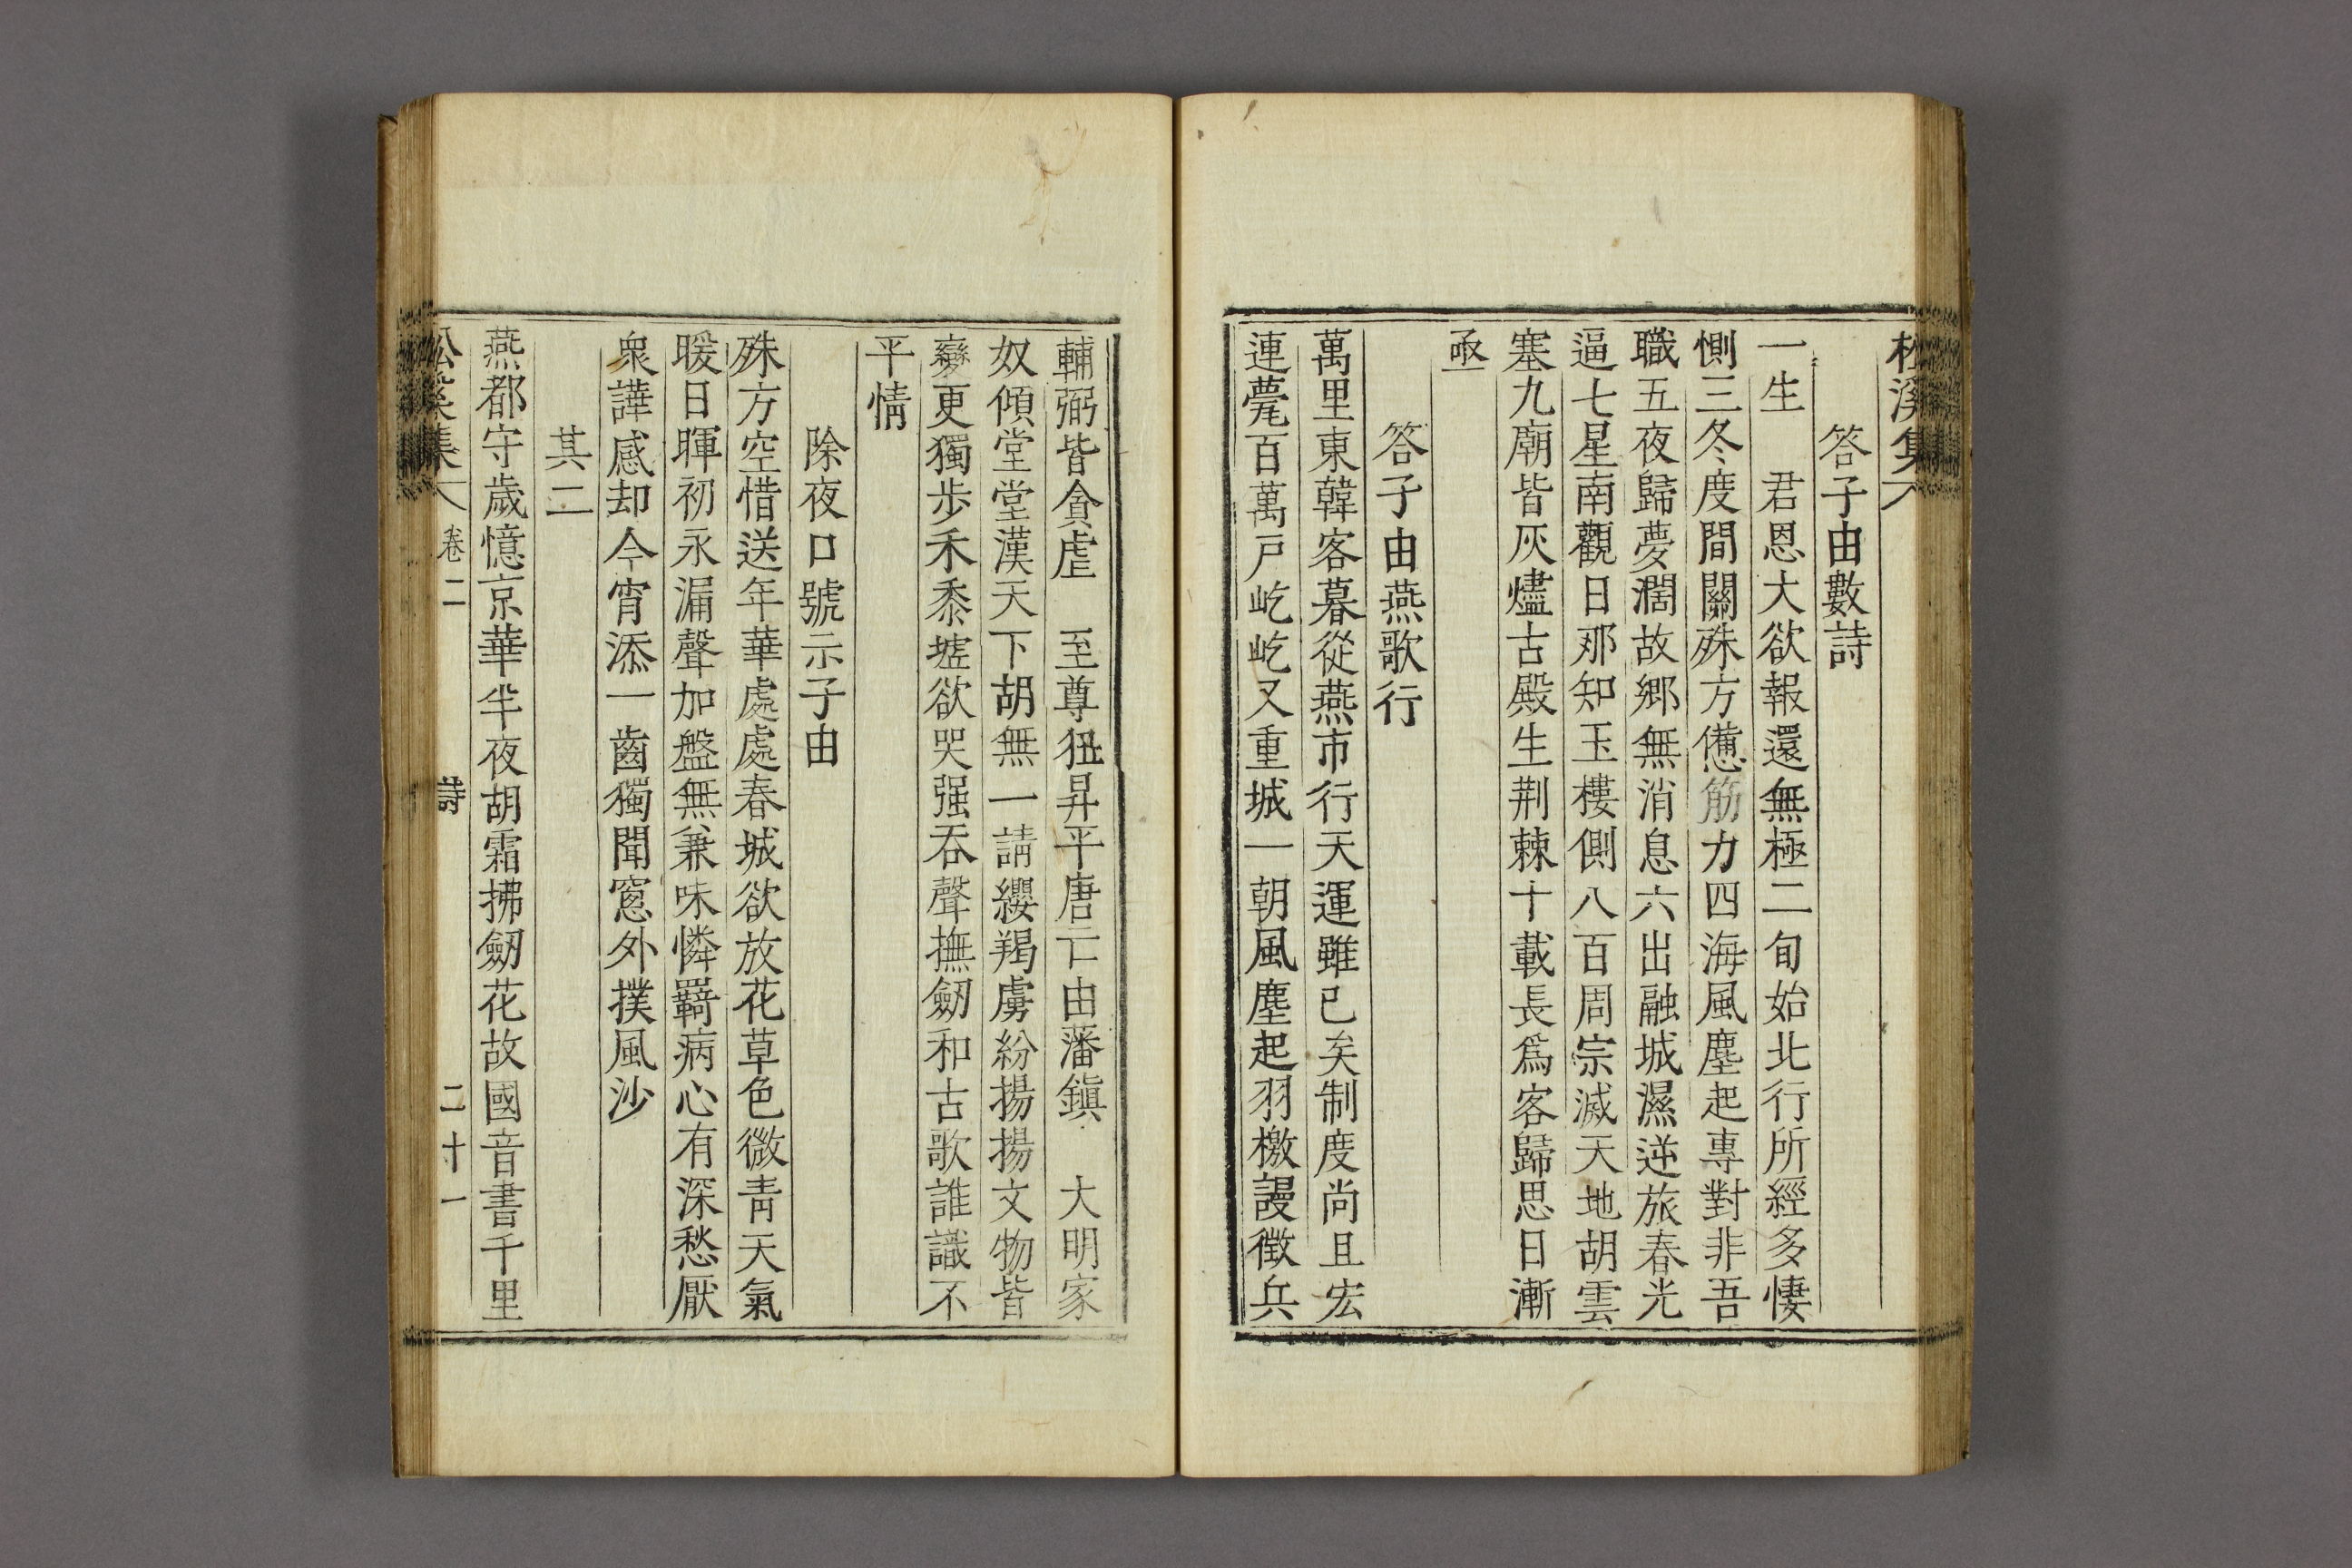 松溪集
答子由數詩
一生　君恩大欲報還無極二旬始北行所經多悽
惻三冬度間關殊方憊筋力四海風塵起專對非吾
職五夜歸夢濶故郷無消息六出融城濕逆旅春光
逼七星南觀日那知玉樓側八百周宗滅天地胡雲
塞九廟皆灰燼古殿生荆棘十載長爲客歸思日漸
亟
答子由燕歌行
萬里東韓客暮從燕市行天運雖已矣制度尚且宏
連甍百萬戸屹屹又重城一朝風塵起羽檄謾徴兵
輔弼皆貪虐　至尊狃昇平唐亡由藩鎭　大明家
奴傾堂堂漢天下胡無一請纓羯虜紛揚揚文物皆
變更獨歩禾黍墟欲哭强吞聲撫劒和古歌誰識不
平情
除夜口號示子由
殊方空惜送年華處處春城欲放花草色微青天氣
暖日暉初永漏聲加盤無兼味憐羇病心有深愁厭
衆譁感却今宵添一齒獨聞窻外撲風沙
其二
燕都守歲憶京華半夜胡霜拂劒花故國音書千里
松溪集　卷二　詩　二十一